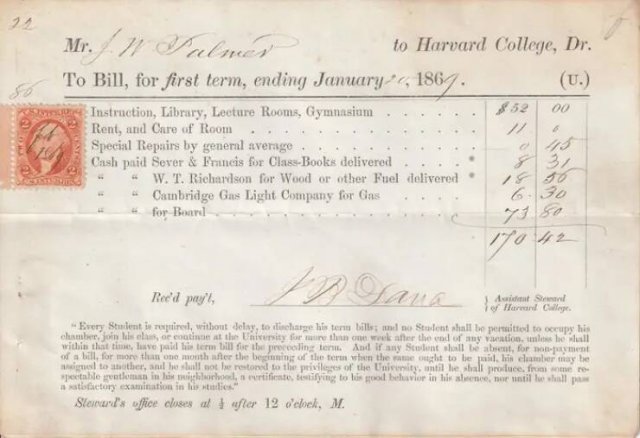 22
Mr. J W Palmer to Harvard College, Dr.
To Bill, for first term, ending January 20, 1869. (U.)
86
Instruction, Library, Lecture Rooms, Gymnasium . . . . . . . $52 00
Rent, and Care of Room . . . . . . . . . . . . 11 0
Special Repairs by general average . . . . . . . . . . 0 45
Cash paid Sever & Francis for Class-Books delivered . . . . 8 31
" " W. T. Richardson for Wood or other Fuel delivered 18 56
" " Cambridge Gas Light Company for Gas . . . . . 6 30
" " for Board . . . . . . . . . . . . 73 80
170 42
Rec'd pay't, J B Dana } Assistant Steward
of Harvard College.
"Every Student is required, without delay, to discharge his term bills; and no Student shall be permitted to occupy his
chamber, join his class, or continue at the University for more than one week after the end of any vacation, unless he shall
within that time, have paid his term bill for the preceeding term. And if any Student shall be absent, for non-payment
of a bill, for more than one month after the beginning of the term when the same ought to be paid, his chamber may be
assigned to another, and he shall not be restored to the privileges of the University, until he shall produce, from some re-
spectable gentleman in his neighborhood, a certificate, testifying to his good behavior in his absence, nor until he shall pass
a satisfactory examination in his studies."
Steward's office closes at ½ after 12 o'clock, M.